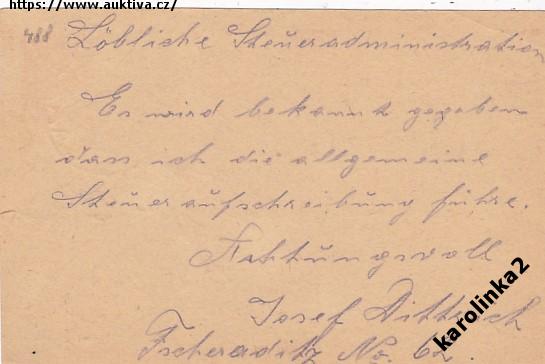 https://www.auktiva.cz/
488
Löbliche Steueradministration
Es wird bekannt gegeben
dass ich die allgemeine
Steueraufschreibung führe.
Achtungsvoll
Josef Dittrich
Tscheraditz No. 62
karolinka2